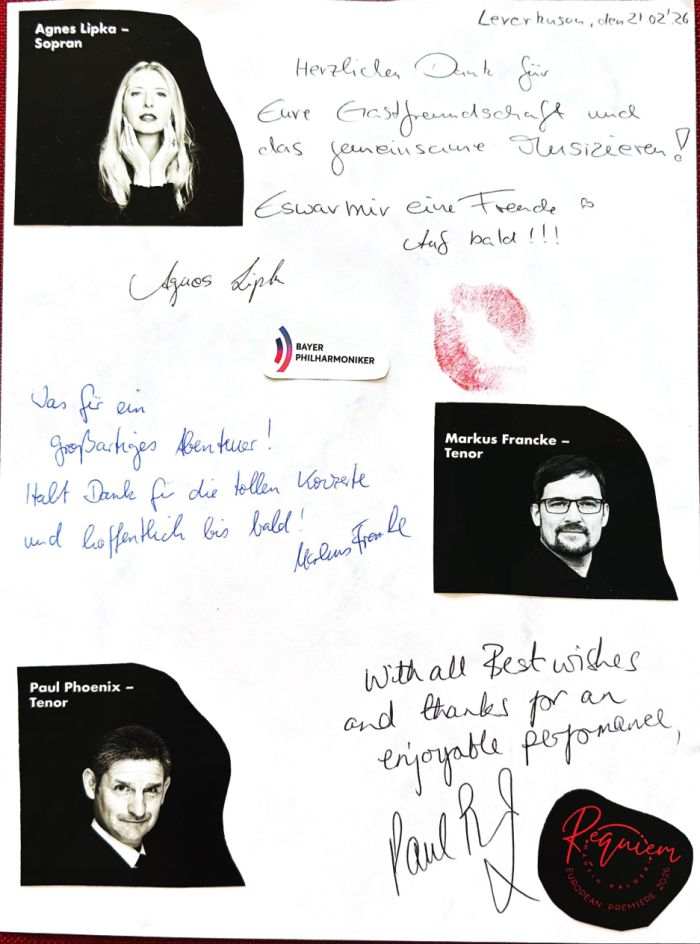 Agnes Lipka –
Sopran
Leverkusen, den 21 02 '26
Herzlichen Dank für
Eure Gastfreundschaft und
das gemeinsame Musizieren!
Es war mir eine Freude
Auf bald!!!
Agnes Lipka
BAYER
PHILHARMONIKER
Was für ein
großartiges Abenteuer!
Dank für die tollen Konzerte
und hoffentlich bis bald!
Markus Francke
Markus Francke –
Tenor
With all Best wishes
and thanks for an
enjoyable performance,
Paul
Paul Phoenix –
Tenor
Requiem
EUROPEAN PREMIERE 2026